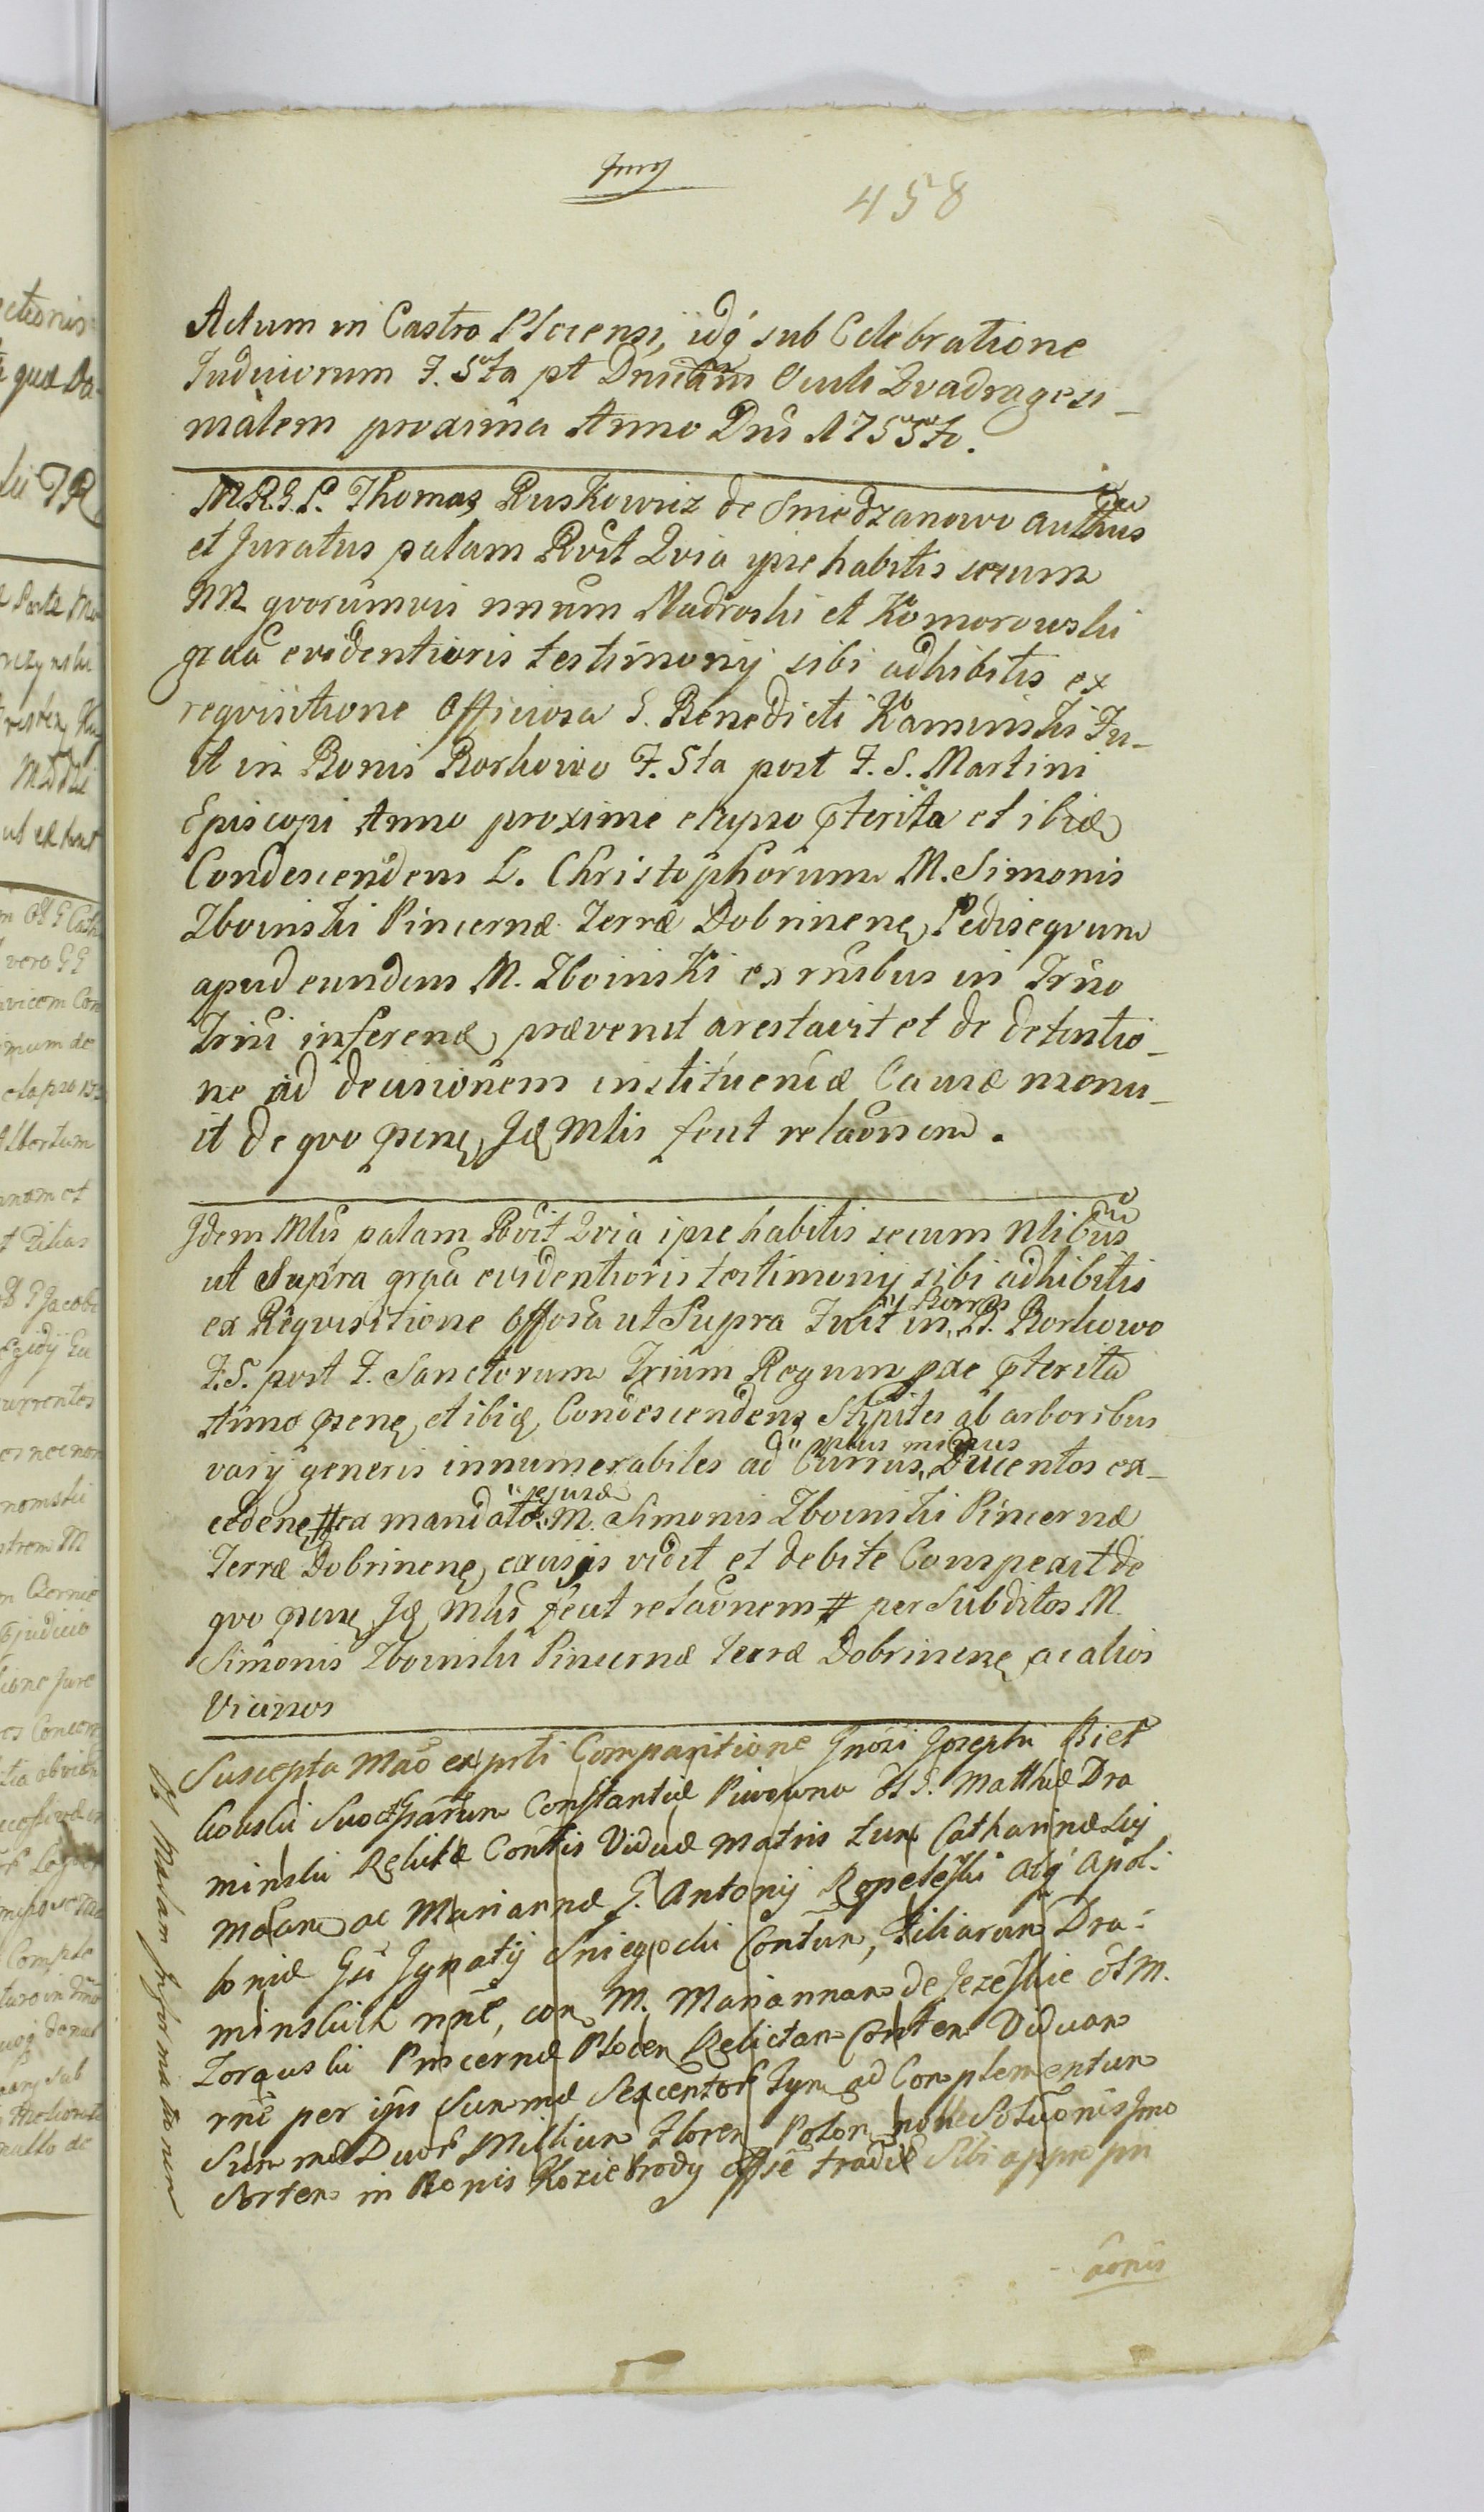 458
Actum in Castro Plocensi, idq́ sub Celebratione
Judiciorum F. 5ta pt Dnicam Oculi Qvadragesi-
malem proxima Anno Dni 1755to.
M.R.G.P. Thomas Ruskowicz de Smiedzanowo authus
et Juratus palam Rvit Qvia ipse habitis secum
NN qvorumvis nnum Nadroski et Komorowski
graã evidentioris testimonij sibi adhibitis ex
reqvisitione Officiosa G. Benedicti Kaminski Fu-
it in Bonis Borkowo F. 5ta post F. S. Martini
Episcopi Anno proxime elapso pterita et ibid
Condescendens L. Christophorum M. Simonis
Zboinski Pincernæ Terræ Dobrinen Pediseqvum
apud eundem M. Zboinski ex rnibus in Trno
Trni inferend prævenit arestavit et de detentio-
ne ad decisionem instituendæ Causæ monu-
it de qvo psens Id Mlis fecit relaõnem.
Idem Mlis palam Rvit Qvia ipse habitis secum Nlibus
ut Supra graã evidentioris testimonij sibi adhibitis
ex Reqvisitione Offosa ut Supra Fuit in B. Borkowo
F.5. post F. Sanctorum Trium Regum pxe pterita
Anno psen et ibid Condescendens Stipites ab arboribus
varij generis innumerabiles ad Currus plus minus Ducentos ex-
ceden # ex mandato ejusd M. Simonis Zboinski Pincernæ
Terræ Dobrinen excisis vidit et debite Conspexit de
qvo psens Id Mlis fecit relaõnem # per Subditos M.
Simonis Zboinski Pincernæ Terræ Dobrinen ac alios
Vicinos
Suscepta Mao ex prti Comparitione Gnosi Josephi Biel
kowski Suo et partium Constantiæ Piwowna olim G. Matthiæ Dra
minski Relictæ Contis Viduæ Matris tum Catharinæ
ac Mariannæ G. Antonij Ropeleski atq́ Apol-
loniæ Gsi Ignatij Sniegocki Contum, Filiarum Dra-
minskich nnẽ, con M. Mariannam de Jezeskie olim M.
Zorawski Pincernæ Plocen Relictam Conten Viduam
rnẽ per ips Summæ Sexcentor Tym ad Complementum
Summæ Duor Millium Floren Polon nõlle Soluõnis Imo
Sortem in Bonis Koziebrody Offsẽ tradit Sibi appropri
aõnis
Ob Malam Informationem